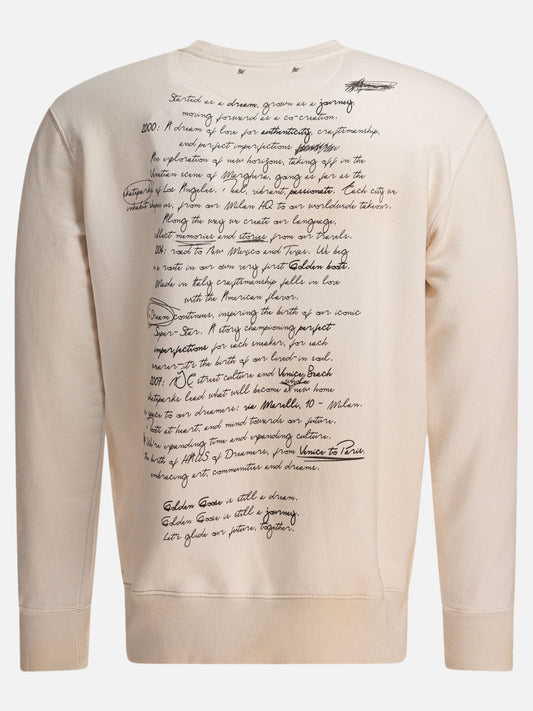 Started as a dream, grown as a journey,
moving forward as a co-creation.
2000: A dream of love for authenticity, craftmanship,
and perfect imperfections
An exploration of new horizons, taking off in the
Venetian scene of Marghera, going as far as the
skateparks of Los Angeles. vibrant, passionate. Each city we
inhabit shapes us, from our Milan HQ to our worldwide takeover.
Along the way we create our language,
collect memories and stories from our travels.
road to New Mexico and Texas. We beg
route in our own very first Golden boots.
Made in Italy craftmanship falls in love
with the American flavor.
Dream continues, inspiring the birth of our iconic
Super-Star. A story championing perfect
imperfections for each sneaker, for each
wearer-it's the birth of our lived-in soul.
2007: NYC street culture and Venice Beach
skateparks lead what will become a new home
space to our dreamers: via Morelli, 10 - Milan.
roots at heart, and mind towards our future.
We're expanding time and expanding culture.
the birth of HAUS of Dreamers, from Venice to Paris.
embracing art, communities and dreams.
Golden Goose is still a dream.
Golden Goose is still a journey.
Let's glide our future, together.